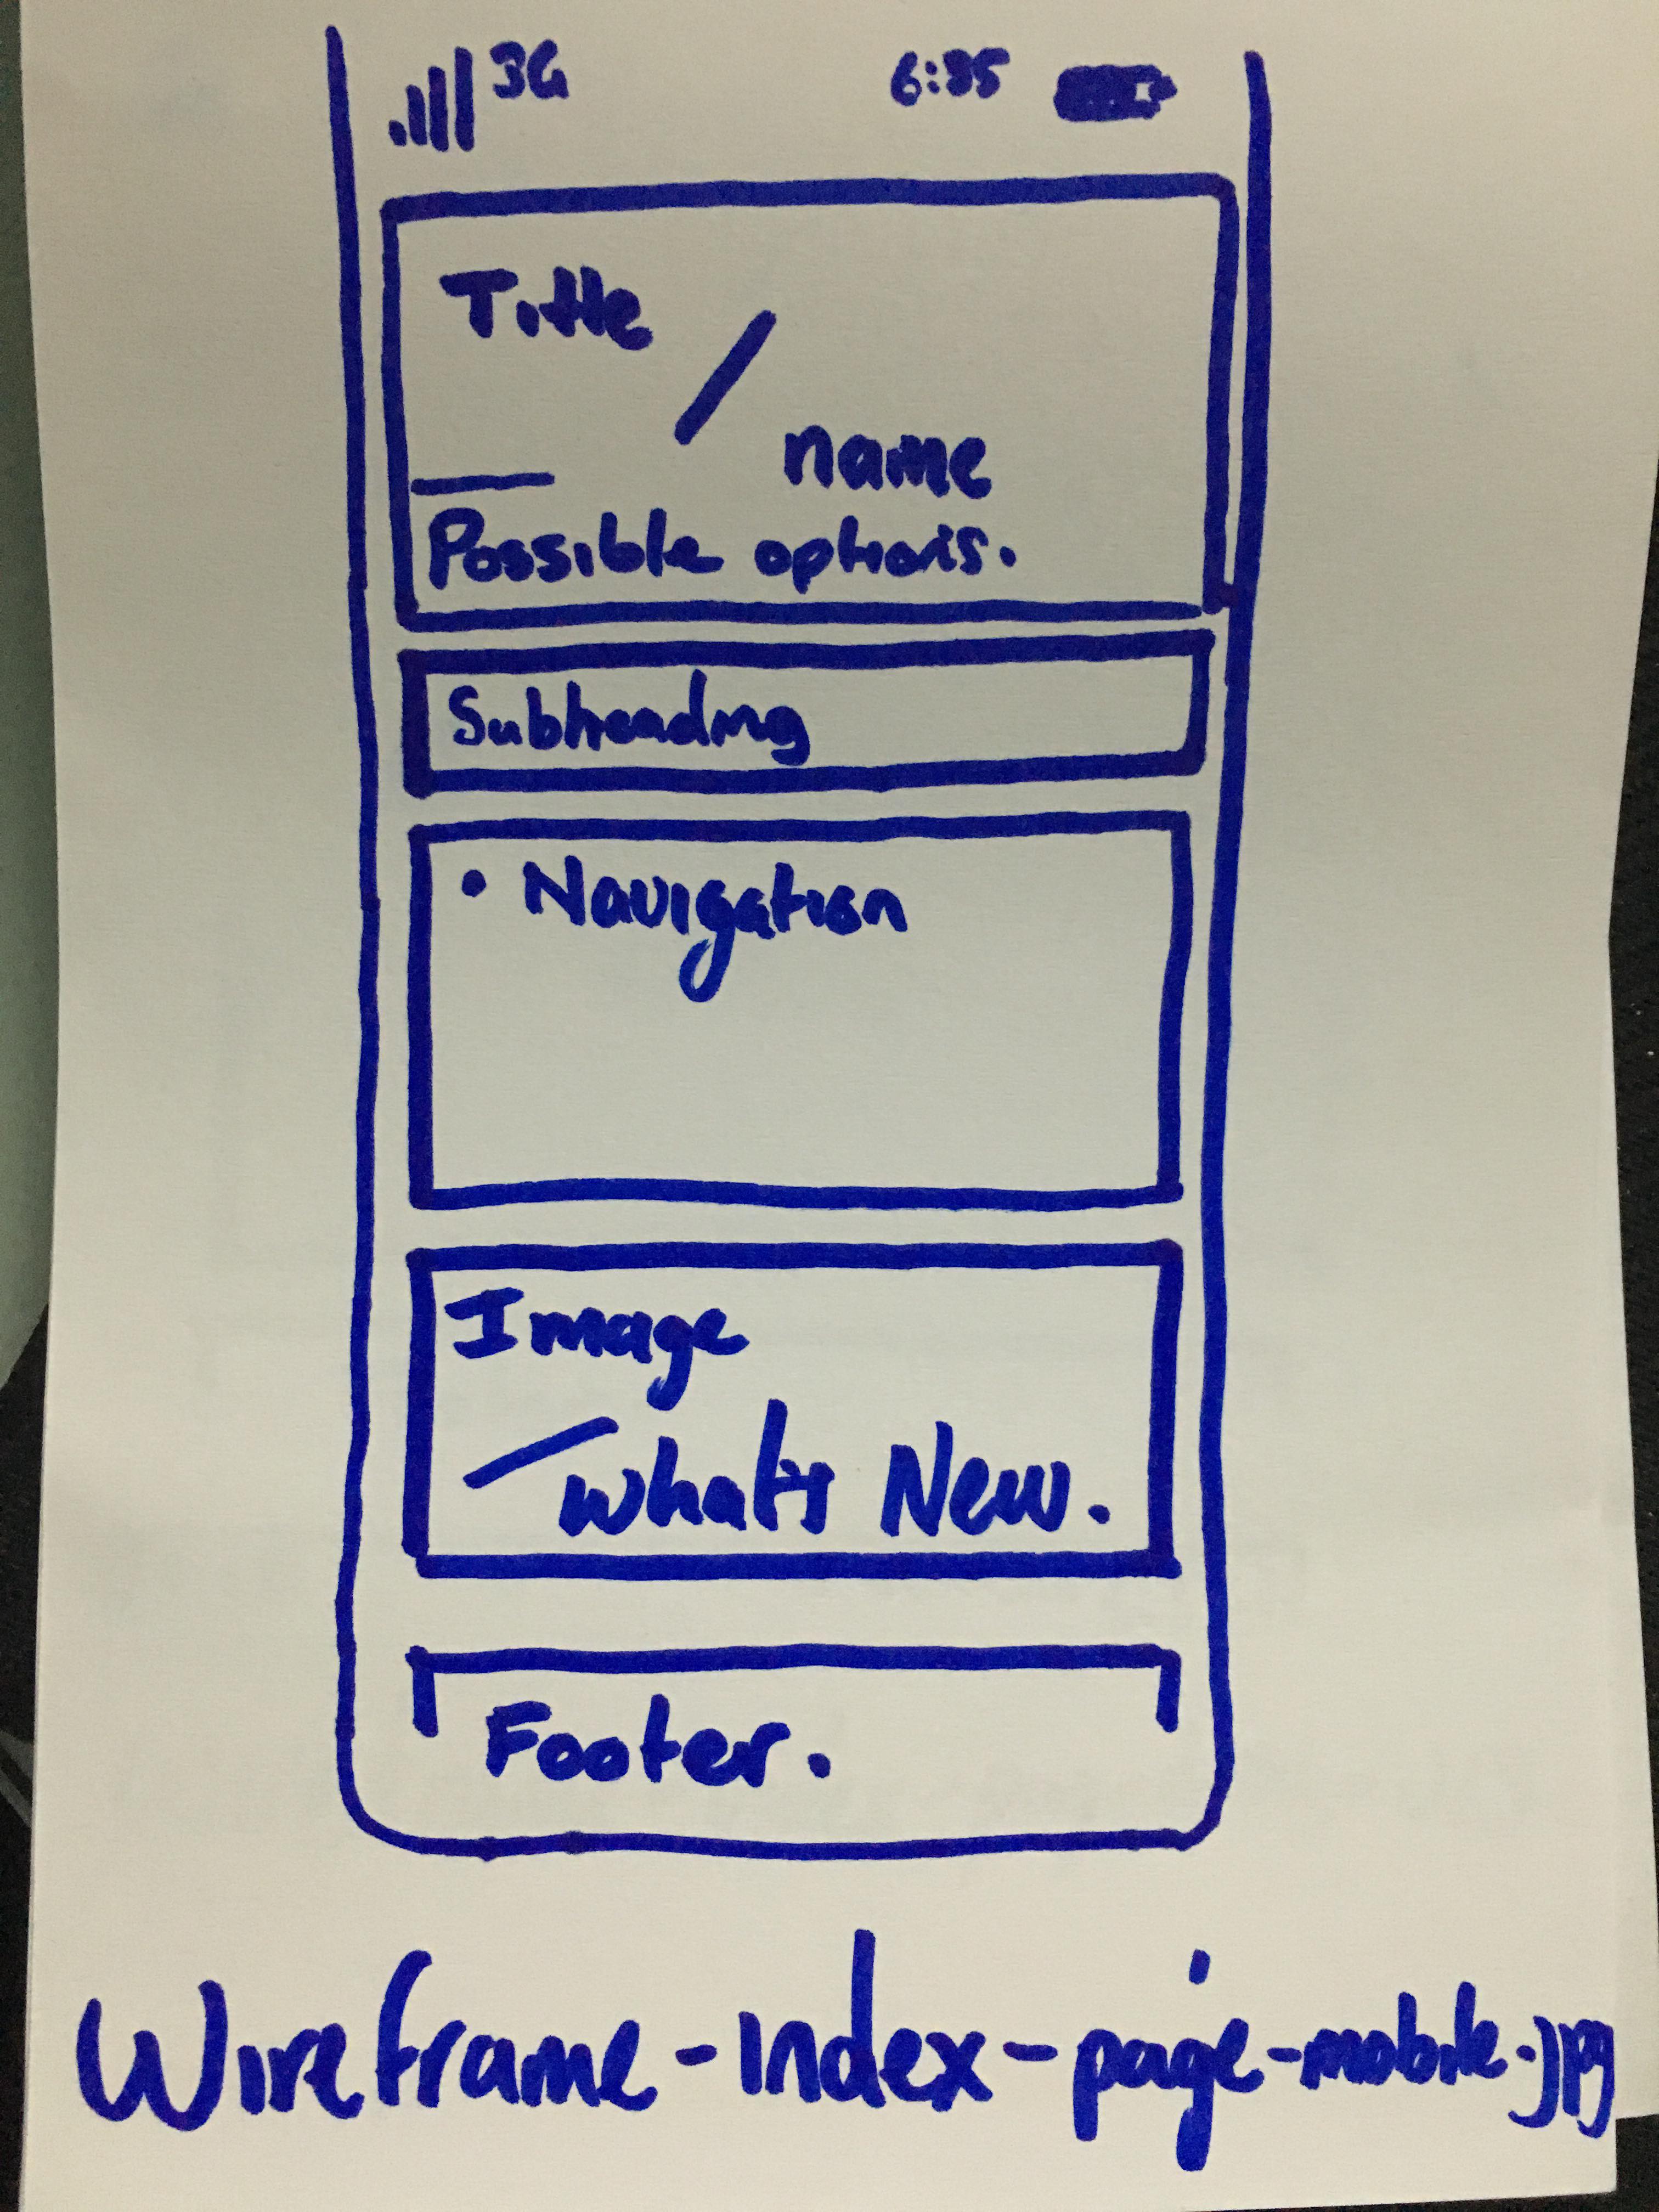 3G 6:35
Title
/
name
Possible options.
Subheading
• Navigation
Image
/ What's New.
Footer.
Wireframe-index-page-mobile.jpg